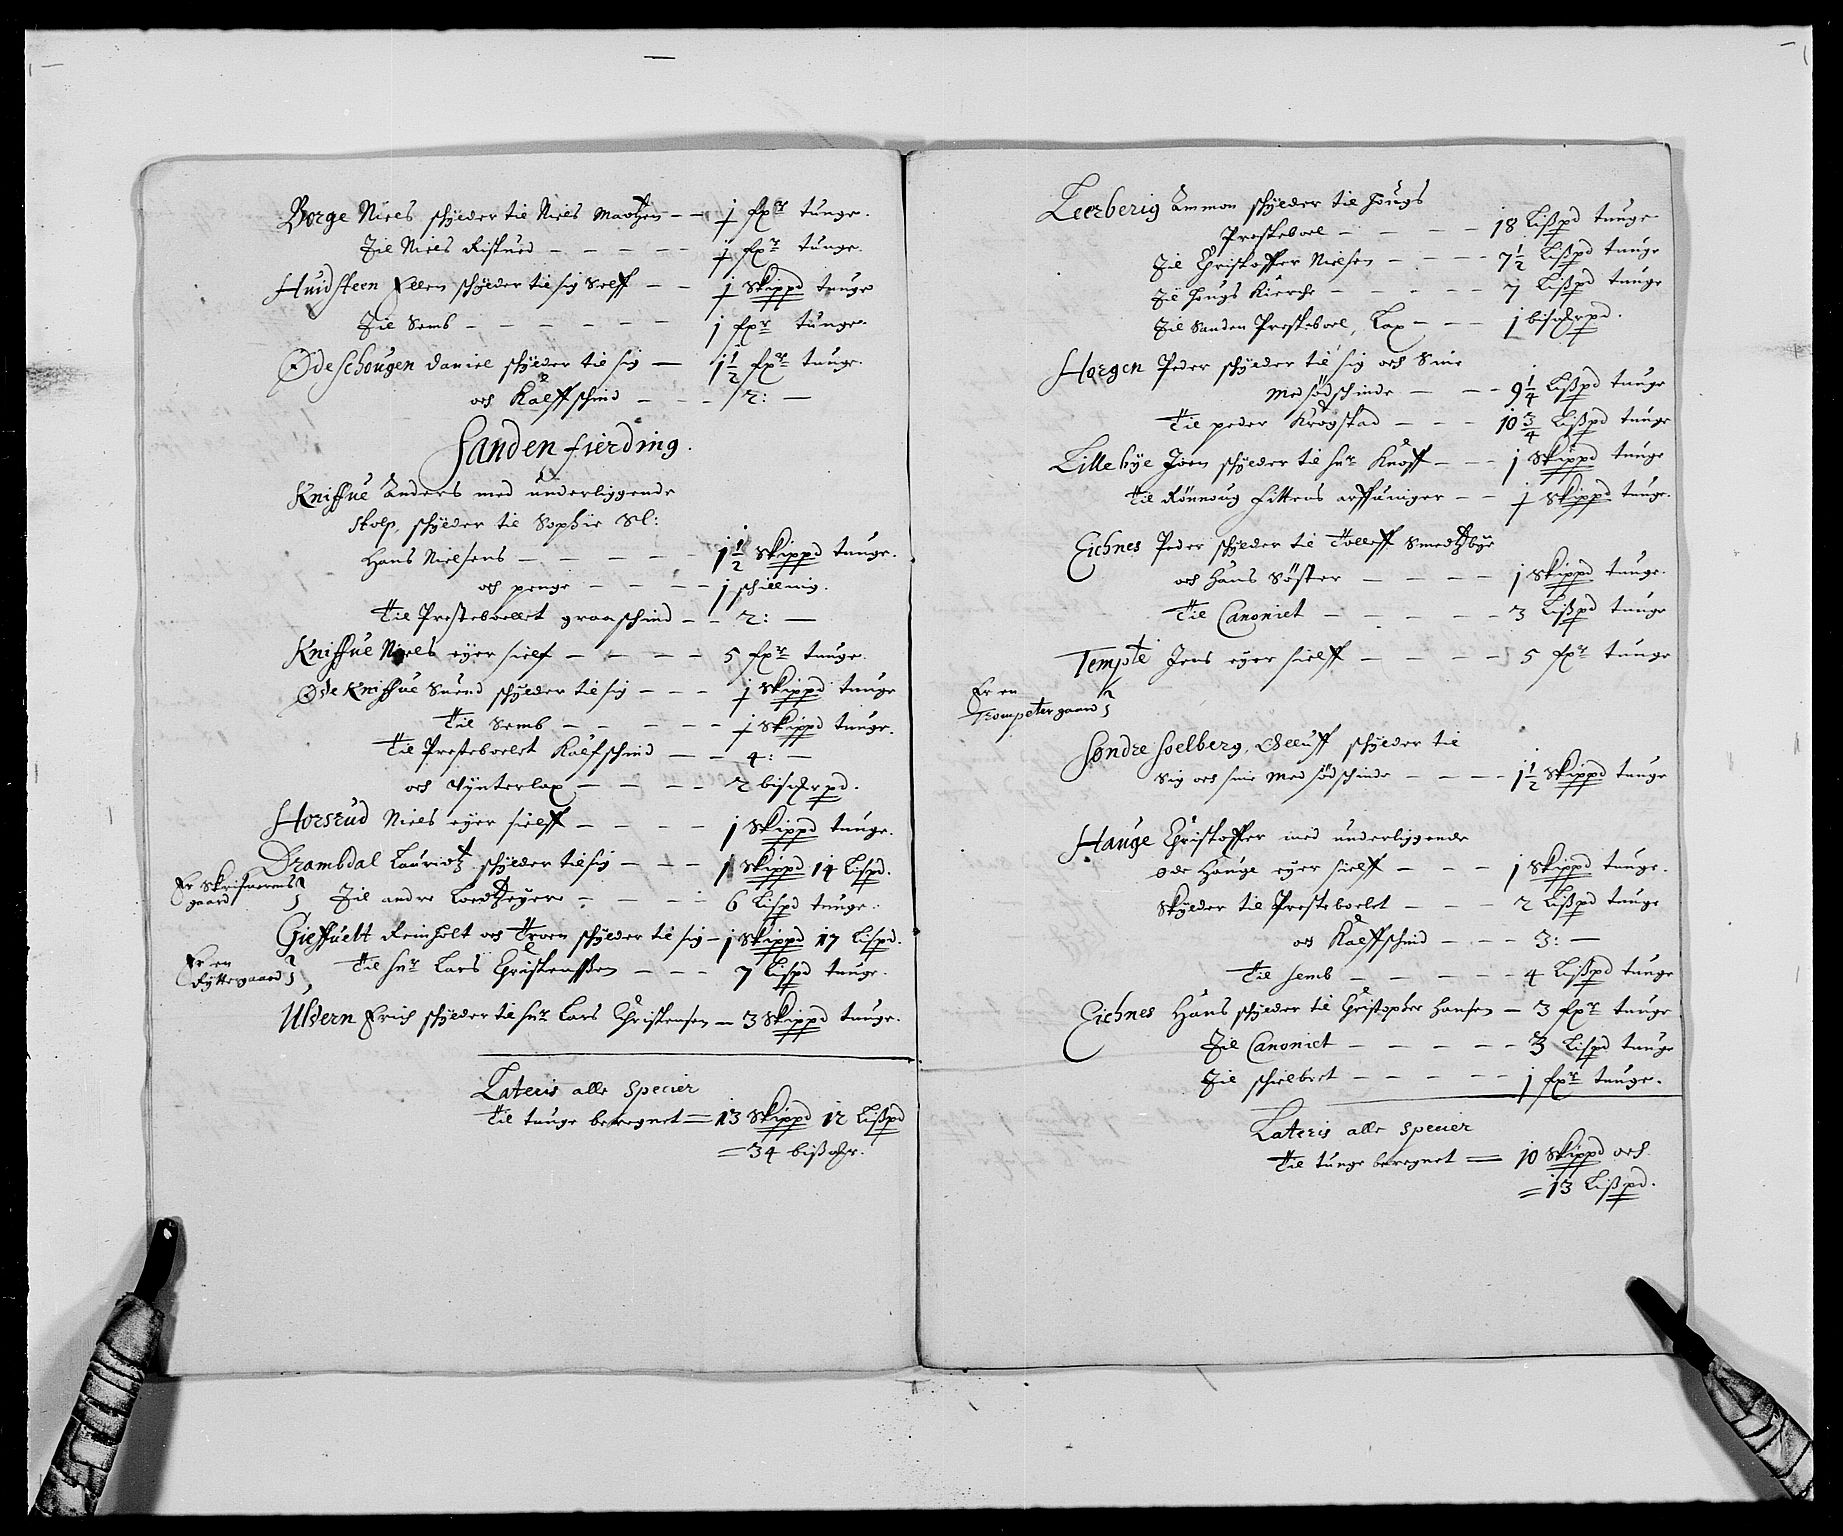 Borge Niels schylder til Niels Madtzen – – j fxr tunge.
Til Niels Ristued – – – – j fxr tunge.
Huidsteen Ellen schylder til sig Self – – j Skippd tunge
Til Semb – – – – – – j fxr tunge.
Ødeschougen Daniel schylder til sig – 1½ fxr tunge.
och Kalffschind – – – 2: –
Sanden fierding.
Kniffue Anders med underliggende
Skolp, schylder til Sophie Sl:
Hans Nielsens – – – – – 1½ Skippd tunge.
och penge – – – – j schilling.
Til Presteboellet graaschind – – 2: –
Kniffue Niels eyer sielf – – – – 5 fxr tunge.
Øde Kniffue Suend schylder til sig – – – j Skippd tunge
Til Semb – – – – – j Skippd tunge.
Til Presteboelet Kalfschind – – 4: –
och Vynterlax – – – – 2 bismrpd.
Horsrud Niels eyer sielff – – – – 1 Skippd tunge.
Drambdal Lauridtz schylder til sig – – – 1 Skippd 14 Lispd.
Er Skrifuerens
gaard
Til andre Loedtzeyere – – – – 6 Lispd tunge.
Gieffuelt Reinholt och Troen schylder til sig – j Skippd 17 Lispd.
Er en
Ryttergaard
Til hr Lars Christenssen – – – 7 Lispd tunge.
Ulvern Erich schylder til hr Lars Christensen – 3 Skippd tunge.
Lateris alle Specier
Til tunge beregnet = 13 Skippd 12 Lißpd
= 34 bißmr.
Leerberig Ammon schylder til Hougs
Presteboel – – – – 18 Lißpd tunge
Til Christoffer Nielsen – – – – 7½ Lißpd tunge
Til Hougs Kierche – – – – – 7 Lißpd tunge
Til Sanden Presteboel, Lax – – – 1 bismrpd.
Horgen Peder schylder til sig och Sine
Medsødschinde – – – 9¼ Lißpd tunge
Til peder Krogstad – – – 10¾ Lißpd tunge
Lillebye Joen schylder til hr Knoff – – – j Skippd tunge
Til Rønnoug fittens arffuinger – – j Skippd tunge.
Eichnes Peder schylder til Tolleff Smedtzbye
och Hans Søster – – – – 1 Skippd tunge.
Til Canoniet – – – – – 3 Lißpd tunge
Tempte Jens eyer sielff – – – – 5 fxr tunge
Er en
Trompetergaard
Søndre Soelberg, Oeluff schylder til
Sig och sine Medsødschinde – – – – 1½ Skippd tunge
Hauge Christoffer med underliggende
øde Hauge eyer sielff – – – 1 Skippd tunge.
Skylder til Presteboelet – – – 2 Lißpd tunge
och Kalffschind – – – 3: –
Til Semb – – – – – 4 Lißpd tunge
Eichnes Hans schylder til Christopher Hansen – 3 fxr tunge
Til Canoniet – – – – – 3 Lispd tunge
Til schielbret – – – – – j fxr tunge.
Lateris alle Specier
Til tunge beregnet = 10 Skippd och
= 13 Lißpd.